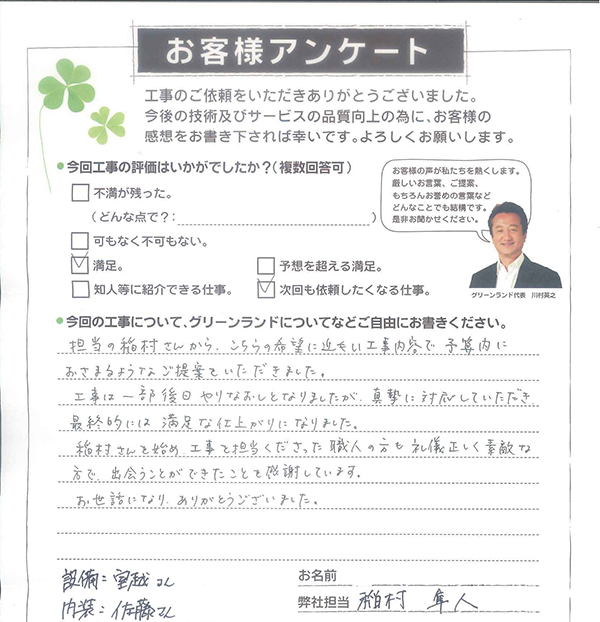 お客様アンケート
工事のご依頼をいただきありがとうございました。
今後の技術及びサービスの品質向上の為に、お客様の
感想をお書き下されば幸いです。よろしくお願いします。
今回工事の評価はいかがでしたか?(複数回答可)
不満が残った。
(どんな点で?: )
可もなく不可もない。
満足。
予想を超える満足。
知人等に紹介できる仕事。
次回も依頼したくなる仕事。
お客様の声が私たちを熱くします。
厳しいお言葉、ご提案、
もちろんお誉めの言葉など
どんなことでも結構です。
是非お聞かせください。
グリーンランド代表 川村英之
今回の工事について、グリーンランドについてなどご自由にお書きください。
担当の稲村さんから、こちらの希望に近もい工事内容で予算内に
おさまるようなご提案をいただきました。
工事は一部後日やりなおしとなりましたが、真摯に対応していただき
最終的には満足な仕上がりになりました。
稲村さんを始め、工事を担当くださった職人の方も礼儀正しく素敵な
方で、出会うことができたことを感謝しています。
お世話になり、ありがとうございました。
設備:室越さん
内装:佐藤さん
お名前
弊社担当 稲村 隼人